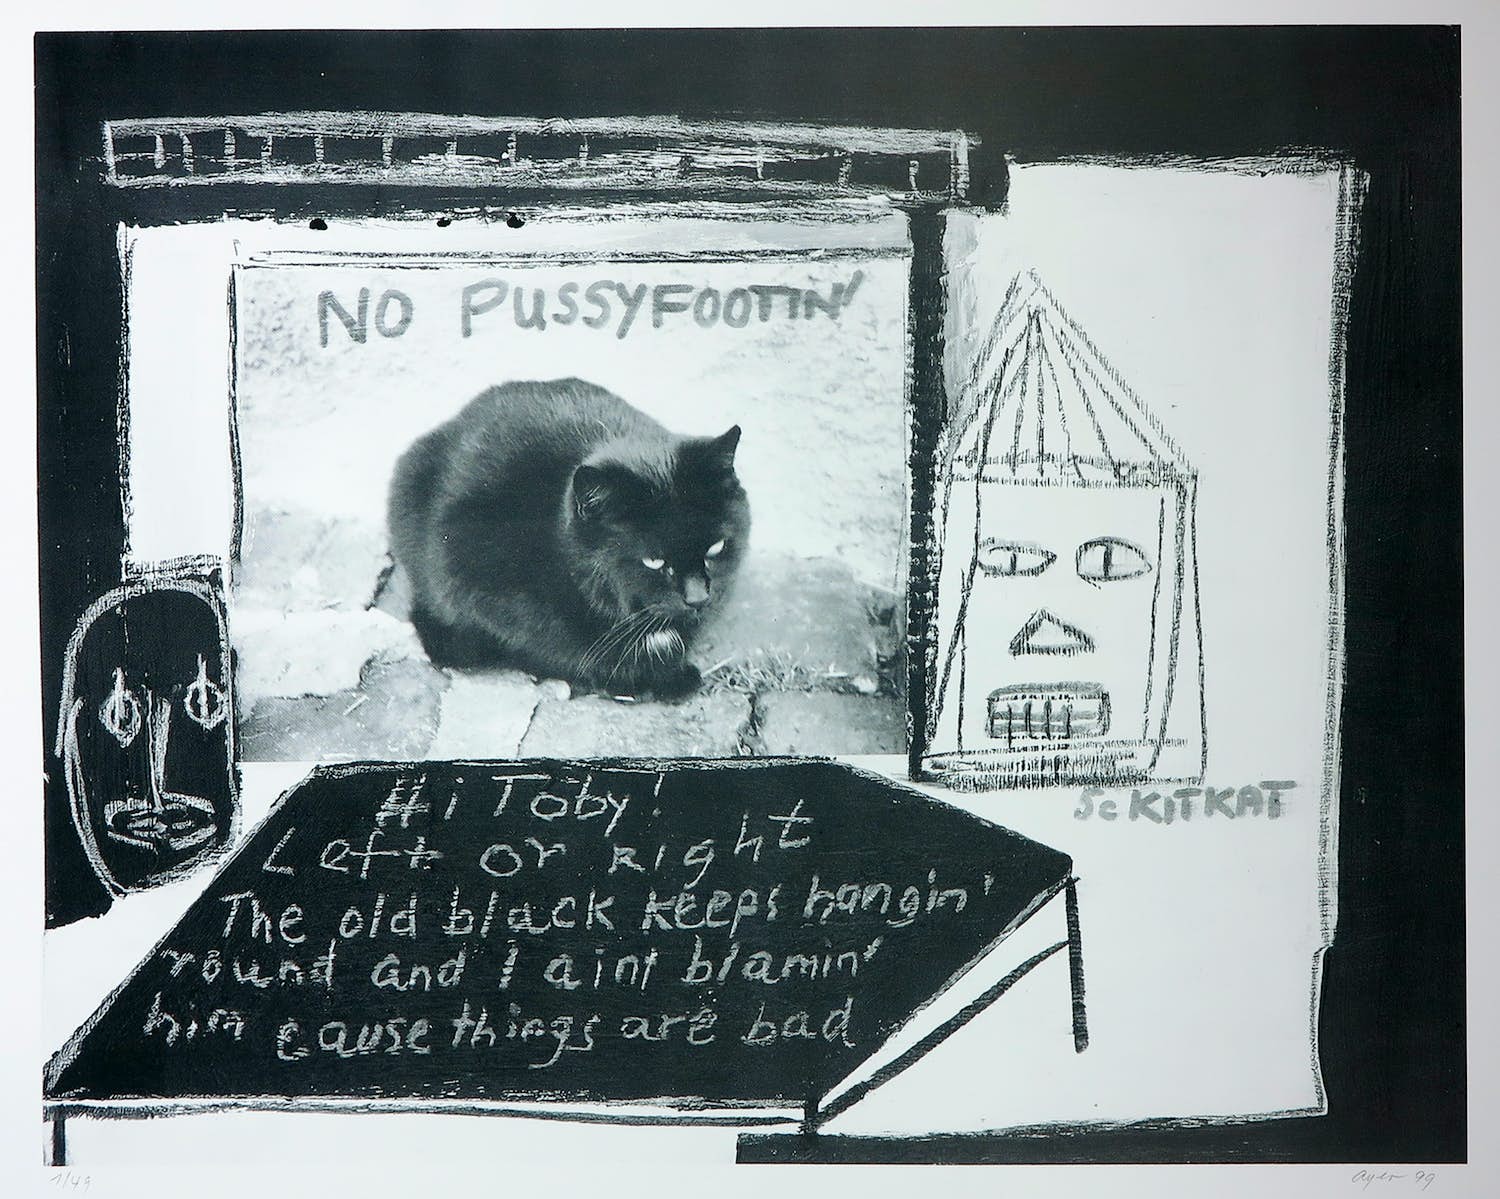 NO PUSSYFOOTIN'
Sc KITKAT
Hi Toby!
Left or Right
The old black keeps hangin'
round and I aint blamin'
him cause things are bad
1/49
Ayer 99